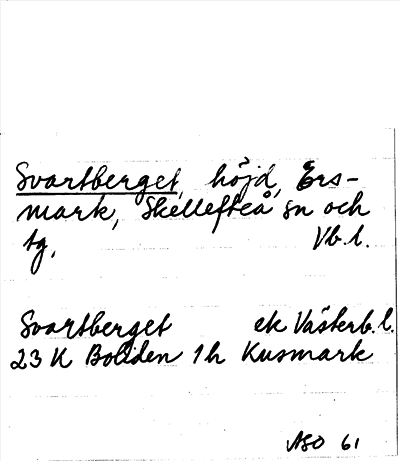 Svartberget, höjd, Ers-
mark, Skellefteå sn och
tg, Vb.l.
Svartberget ek Västerb.l.
23 K Boliden 1h Kusmark
ASO 61